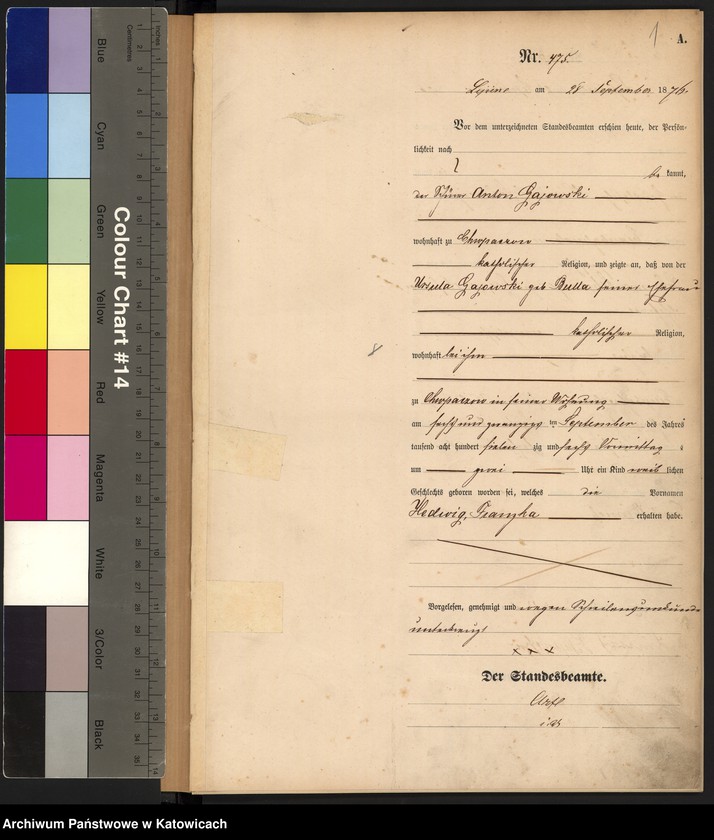 1
A.
Nr. 475.
Lipine am 28 September 1876.
Vor dem unterzeichneten Standesbeamten erschien heute, der Persön-
lichkeit nach
be kannt,
der Anton Gajowski
wohnhaft zu Chropaczow
katholischer Religion, und zeigte an, daß von der
Ursula Gajowski geb. Bulla seiner Ehefrau
katholischer Religion,
wohnhaft bei ihm
zu Chropaczow in seiner Wohnung
am sechs und zwanzigs ten September des Jahres
tausend acht hundert sieben zig und sechs Vormittag s
um zwei Uhr ein Kind weib lichen
Geschlechts geboren worden sei, welches die Vornamen
Hedwig, Franzka erhalten habe.
8
Vorgelesen, genehmigt und wegen Schreibensunkunde
unterkreuzt
× × ×
Der Standesbeamte.
Colour Chart #14
Blue
Cyan
Green
Yellow
Red
Magenta
White
3/Color
Black
Centimetres
Inches
Archiwum Państwowe w Katowicach